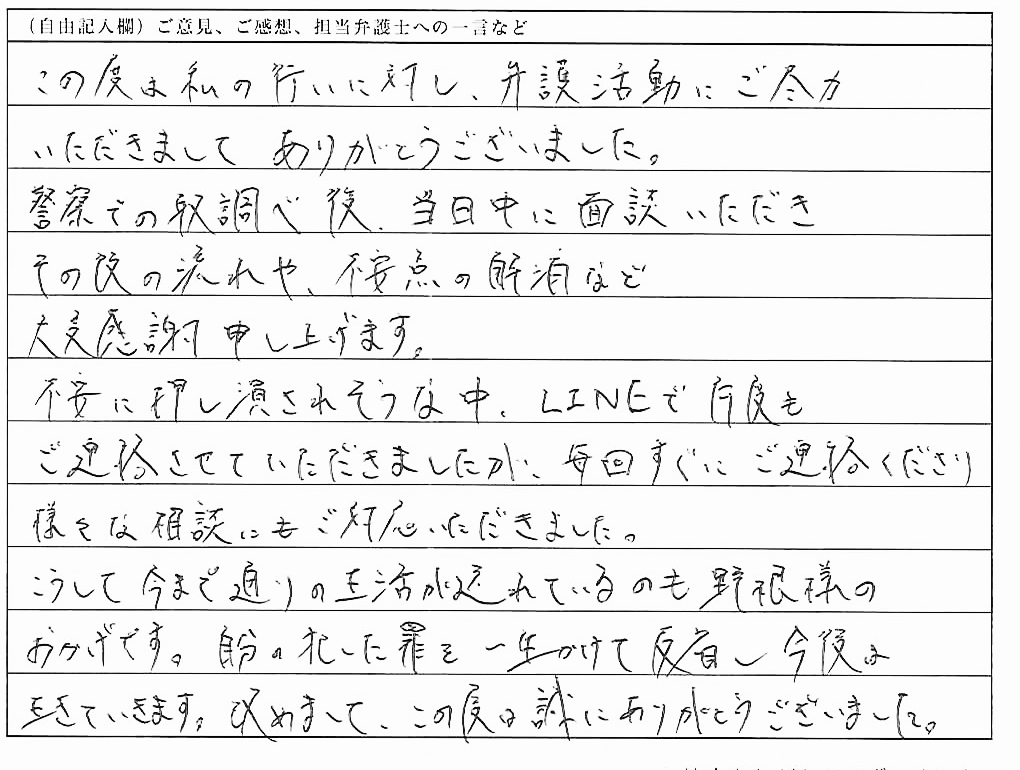 (自由記入欄)ご意見、ご感想、担当弁護士への一言など
この度は私の行いに対し、弁護活動にご尽力
いただきまして ありがとうございました。
警察での取調べ後、当日中に面談いただき
その後の流れや、不安点の解消など
大変感謝申し上げます。
不安に押し潰されそうな中、LINEで何度も
ご連絡させていただきましたが、毎回すぐにご連絡くださり
様々な相談にもご対応いただきました。
こうして今まで通りの生活が送れているのも野根様の
おかげです。自分の犯した罪を一生かけて反省し今後は
生きていきます。改めまして、この度は誠にありがとうございました。